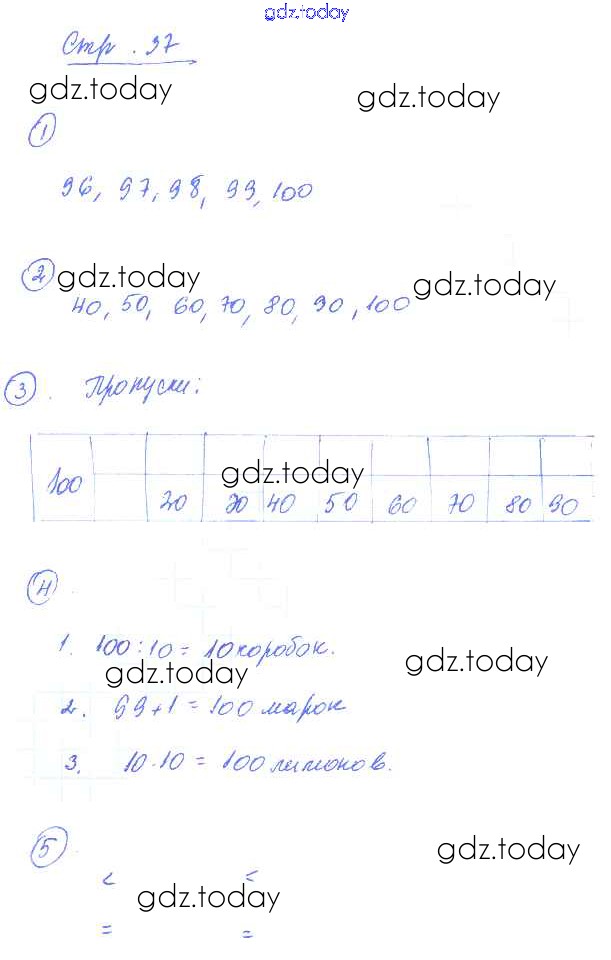 gdz.today
Стр. 37
gdz.today gdz.today
1
96, 97, 98, 99, 100
2 gdz.today gdz.today
40, 50, 60, 70, 80, 90, 100
3. Пропуски:
gdz.today
100 20 30 40 50 60 70 80 90
4
1. 100:10=10 коробок.
gdz.today gdz.today
2. 99+1=100 марок
3. 10·10=100 лимонов.
5 gdz.today
< <
gdz.today
= =